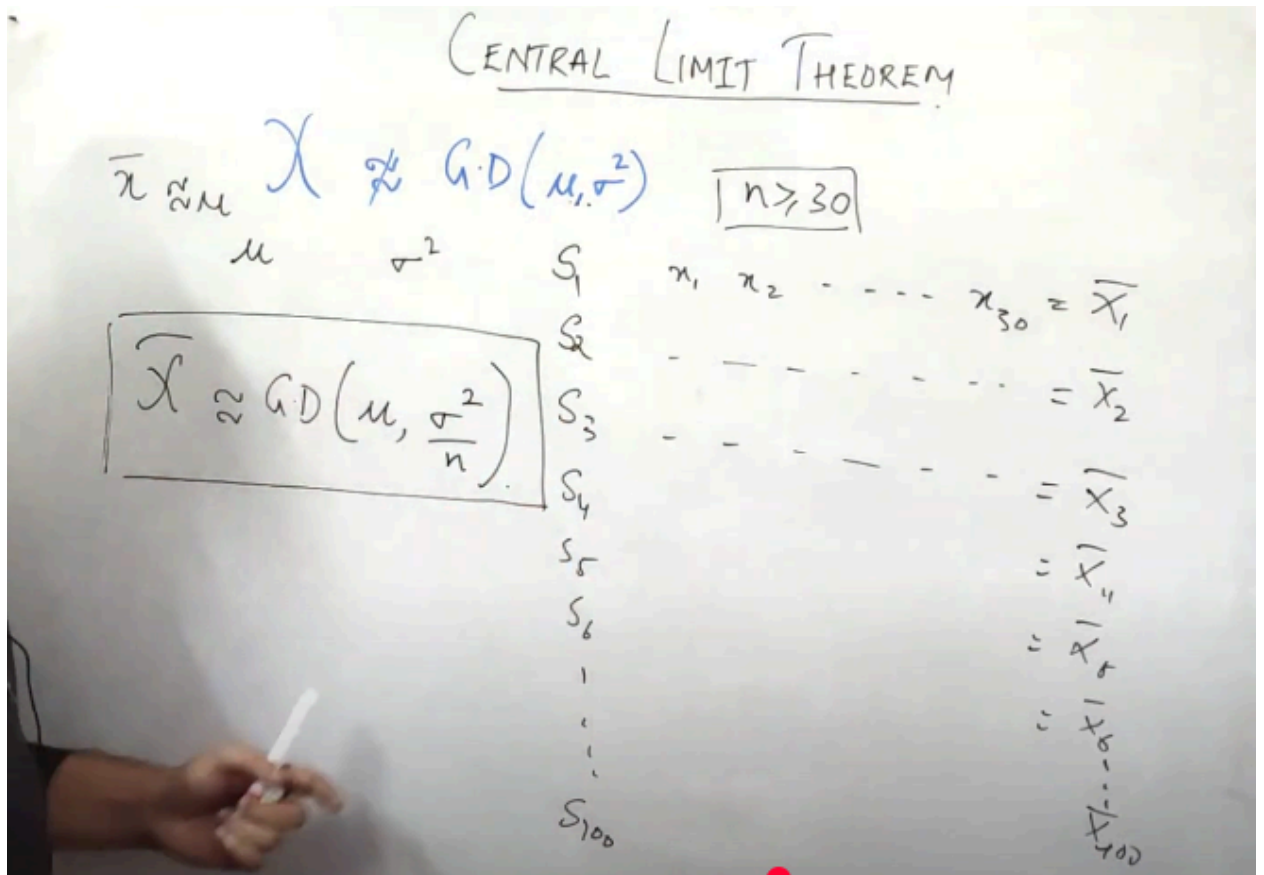 CENTRAL LIMIT THEOREM
x̄ ≈ μ X ≉ G.D(μ, σ²) n ≥ 30
μ σ²
S₁ x₁ x₂ ----- x₃₀ = X̄₁
S₂ - - - - - - - = X̄₂
X̄ ≈ G.D(μ, σ²/n).
S₃ - - - - - - = X̄₃
S₄ = X̄₄
S₅ = X̄₅
S₆ = X̄₆
S₁₀₀ X̄₁₀₀